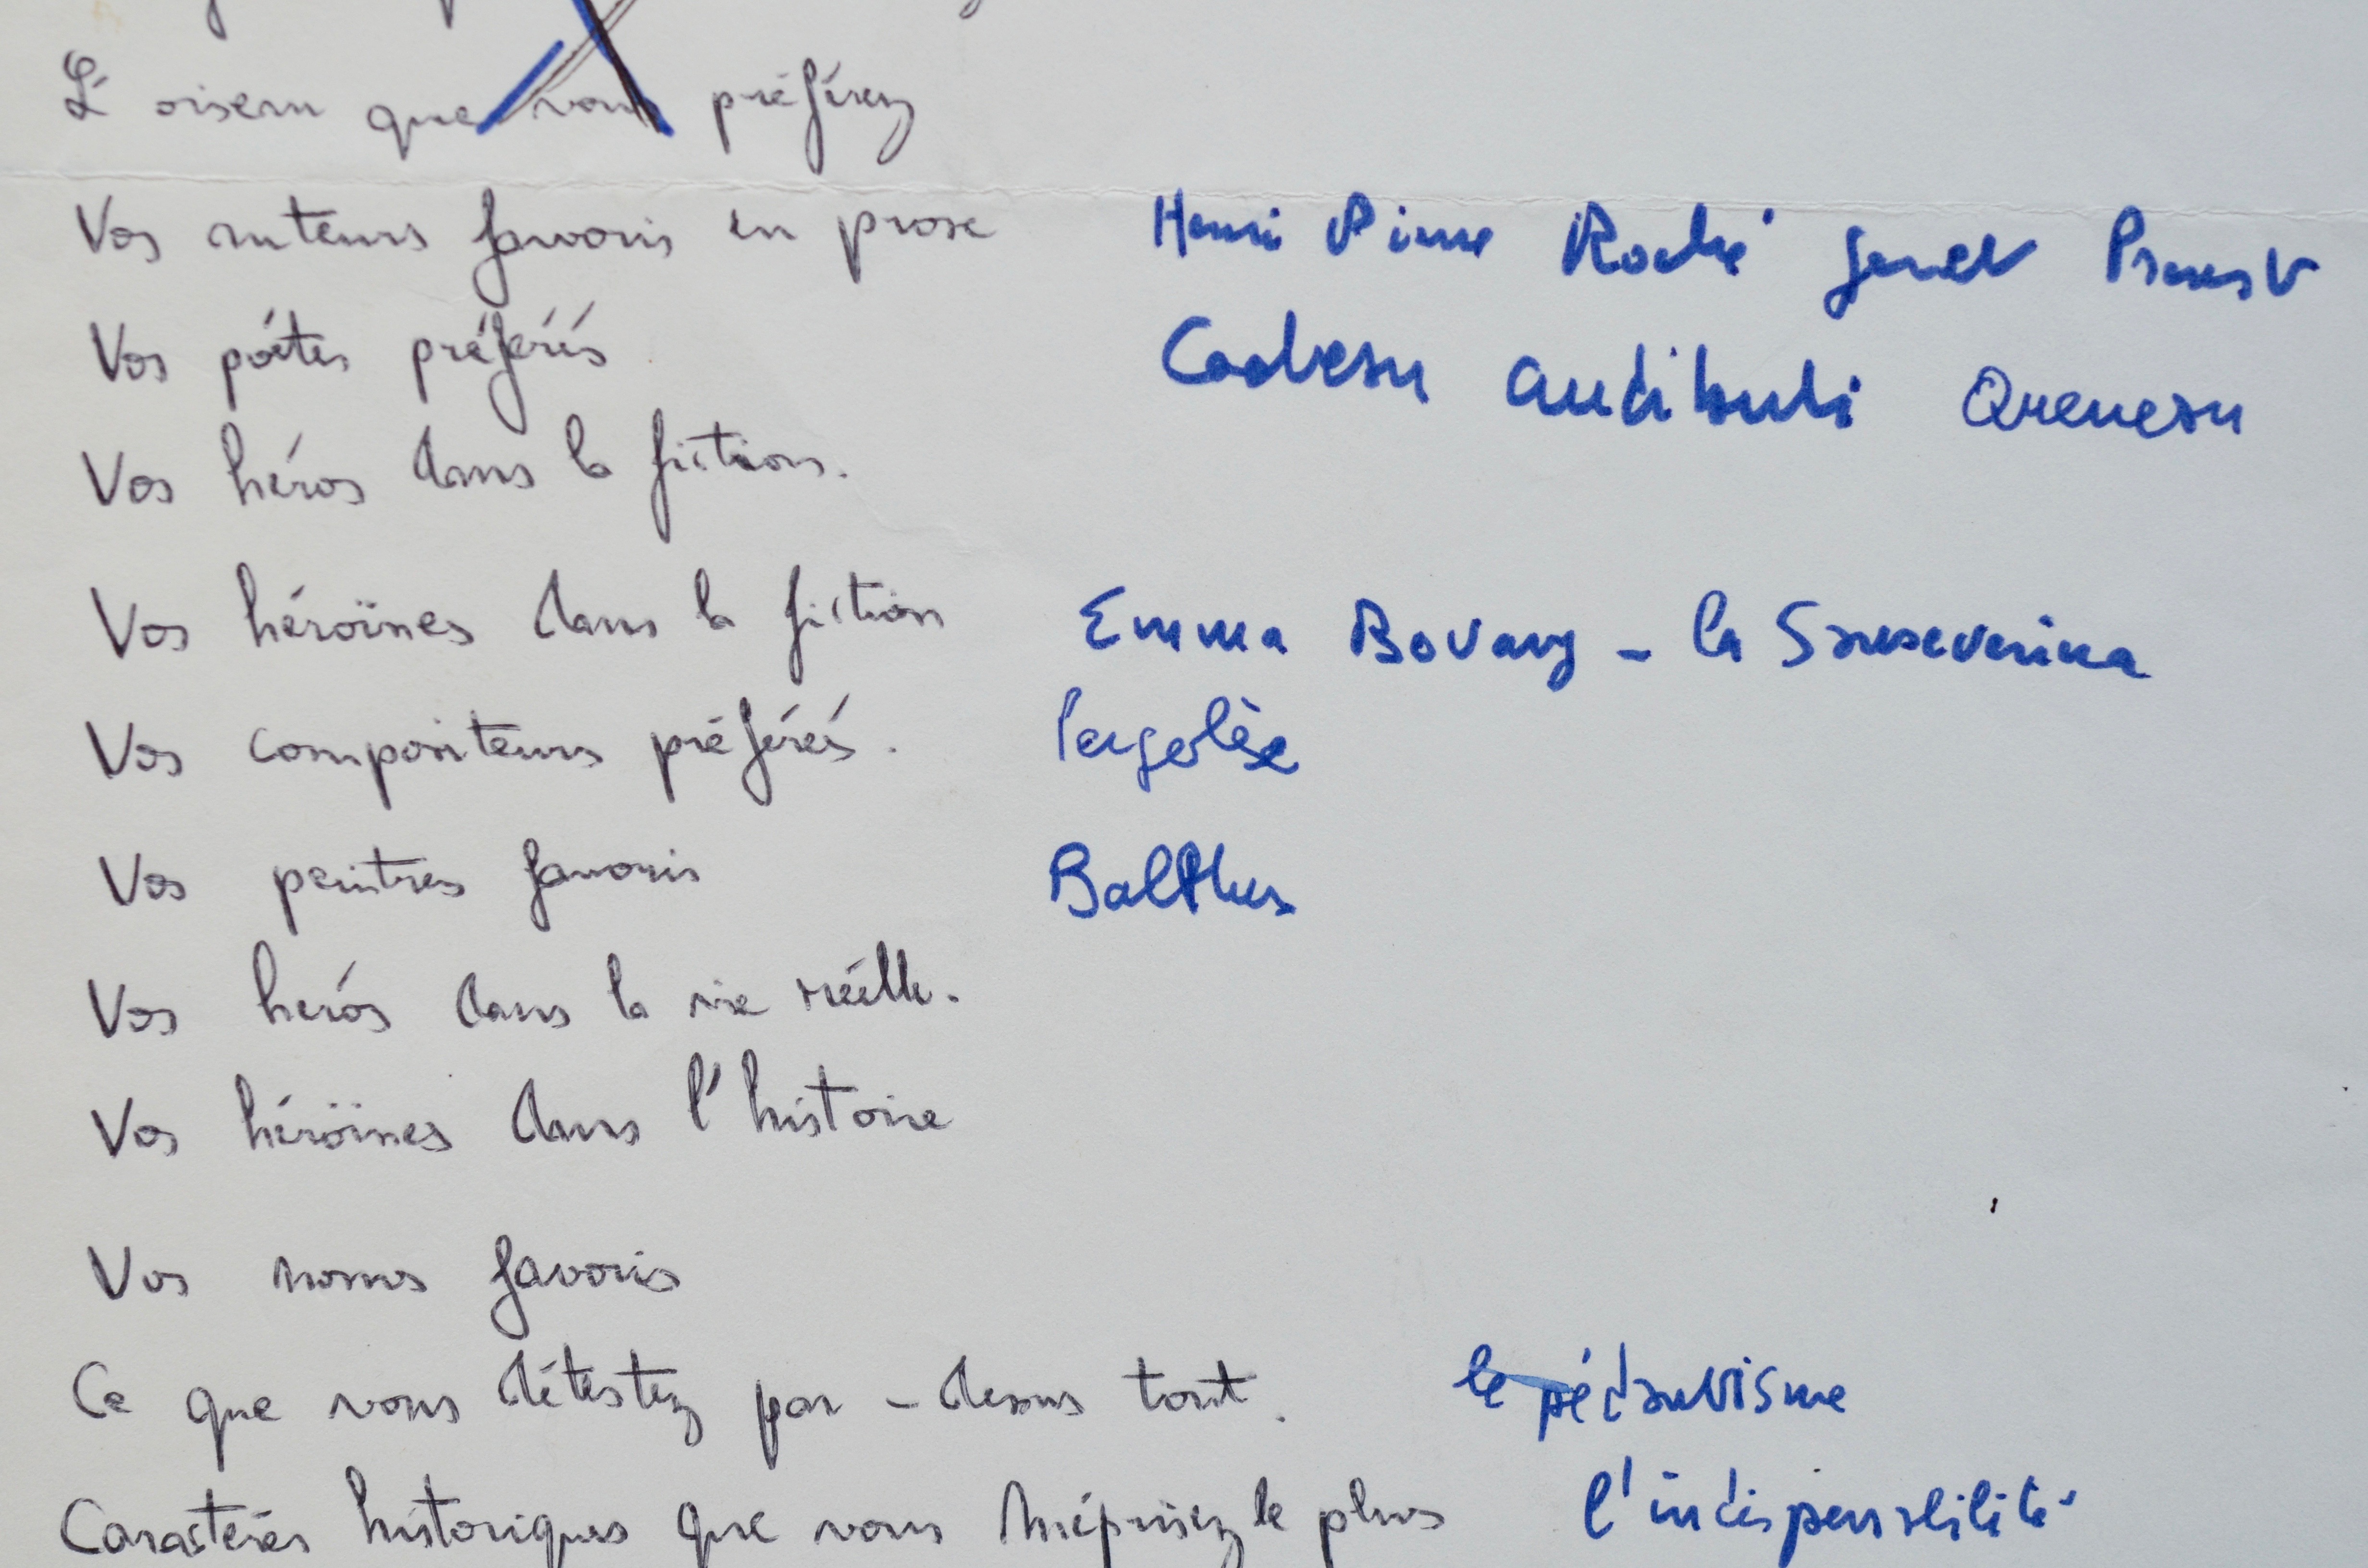 L'oiseau que vous préférez
Vos auteurs favoris en prose Henri Pierre Roché Genet Proust
Vos poétes préférés Cocteau Audiberti Queneau
Vos héros dans la fiction.
Vos héroïnes dans la fiction Emma Bovary - la Sanseverina
Vos compositeurs préférés. Pergolèse
Vos peintres favoris Balthus
Vos herós dans la vie réélle.
Vos héroïnes dans l'histoire
Vos noms favoris
Ce que vous détestez par-dessus tout. le pédantisme
Caractéres historiques que vous méprisez le plus l'indisponibilité